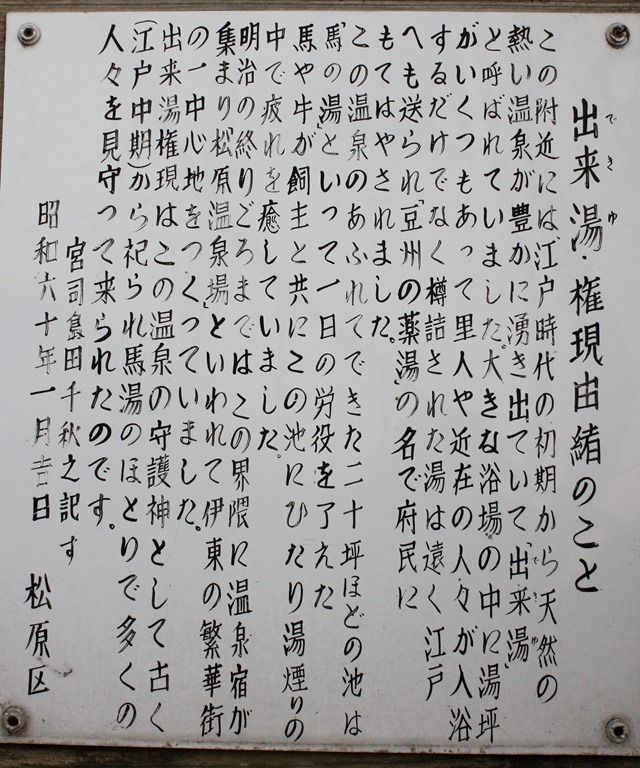 出来湯・権現由緒のこと
できゆ
この附近には江戸時代の初期から天然の
熱い温泉が豊かに湧き出ていて「出来湯」
できゆ
と呼ばれていました大きな浴場の中に湯坪
がいくつもあって里人や近在の人々が入浴
するだけでなく樽詰された湯は遠く江戸
へも送られ「豆州の薬湯」の名で府民に
もてはやされました。
この温泉のあふれてできた二十坪ほどの池は
「馬の湯」といって一日の労役を了えた
馬や牛が飼主と共にこの池にひたり湯煙りの
中で疲れを癒していました。
明治の終りごろまではこの界隈に温泉宿が
集まり「松原温泉場」といわれて伊東の繁華街
の一中心地をつくっていました。
出来湯権現はこの温泉の守護神として古く
(江戸中期)から祀られ馬湯のほとりで多くの
人々を見守って来られたのです。
宮司島田千秋之記す
昭和六十年一月吉日 松原区